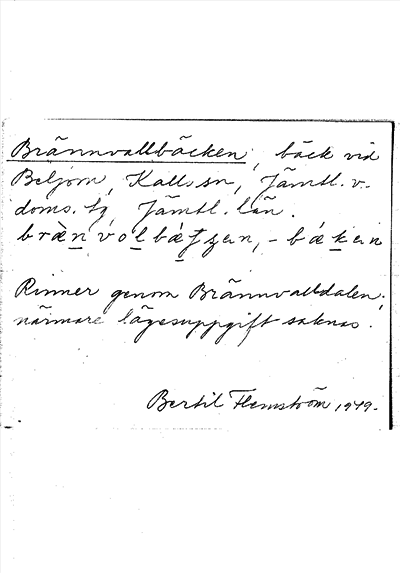 Brännvallbäcken, bäck vid
Beljom, Kalls sn, Jämtl. v.
doms. tg Jämtl. län.
brä̀n vo̱l bǽtʃen, -bǽken
Rinner genom Brännvalldalen;
närmare lägesuppgift saknas.
Bertil Flemström 1979.